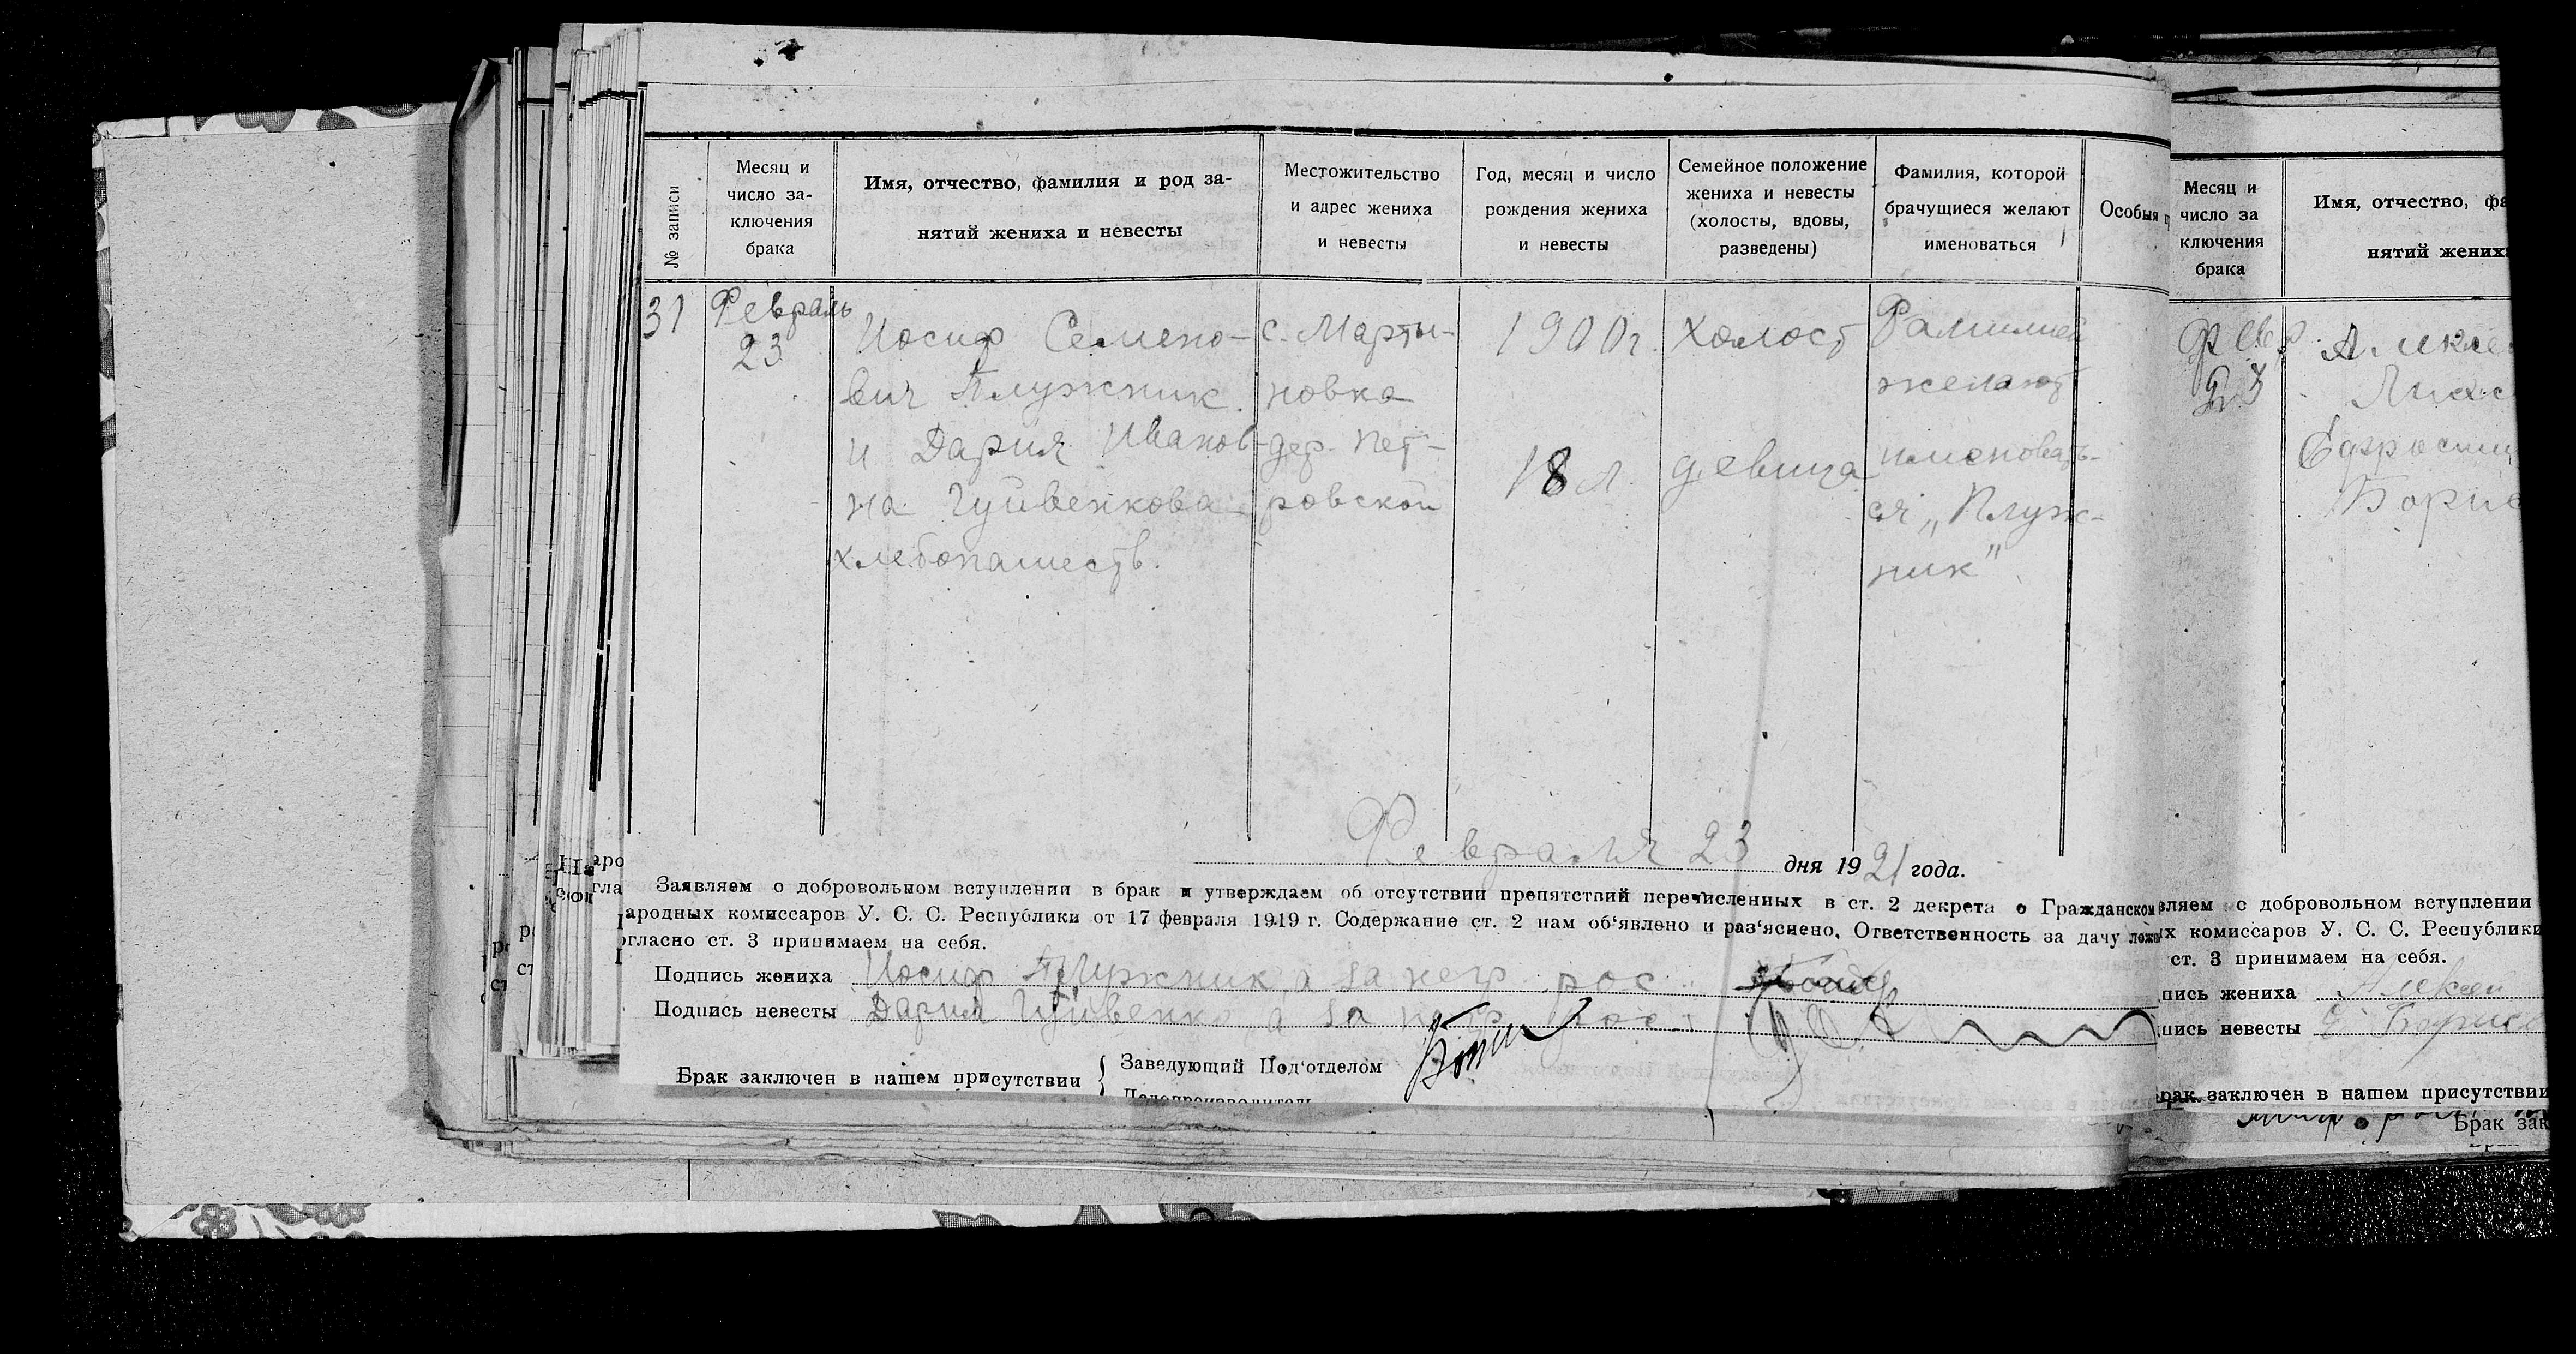 № записи
Месяц и
число за-
ключения
брака
Имя, отчество, фамилия и род за-
нятий жениха и невесты
Местожительство
и адрес жениха
и невесты
Год, месяц и число
рождения жениха
и невесты
Семейное положение
жениха и невесты
(холосты, вдовы,
разведены)
Фамилия, которой
брачущиеся желают
именоваться
Особыя
31
Февраль
23
Иосиф Семено-
вич Плужник
и Дария Иванов-
на Гуйвенкова
хлебопашеств.
с. Марты-
новка
дер. Пет-
ровской
1900 г.
18 л.
холост
девица
Фамилией
желают
именовать-
ся „Плуж-
ник"
Февраля 23 дня 1921 года.
Заявляем о добровольном вступлении в брак и утверждаем об отсутствии препятствий перечисленных в ст. 2 декрета о Гражданском
ародных комиссаров У. С. С. Республики от 17 февраля 1919 г. Содержание ст. 2 нам об'явлено и раз'яснено. Ответственность за дачу
огласно ст. 3 принимаем на себя.
Подпись жениха Иосиф Плужник, а за негр. рос.
Подпись невесты Дария Гуйвенко, а за негр. рос.
Брак заключен в нашем присутствии
Заведующий Под'отделом
Делопроизводитель
Месяц и
число за
ключения
брака
Имя, отчество, фа
нятий жених
Февр
23
Алексе
Лихо
Ефросин
Борис
вляем о добровольном вступлении
х комиссаров У. С. С. Республики
ст. 3 принимаем на себя.
пись жениха Алексей
пись невесты Е Борис
рак заключен в нашем присутствии
Брак зак